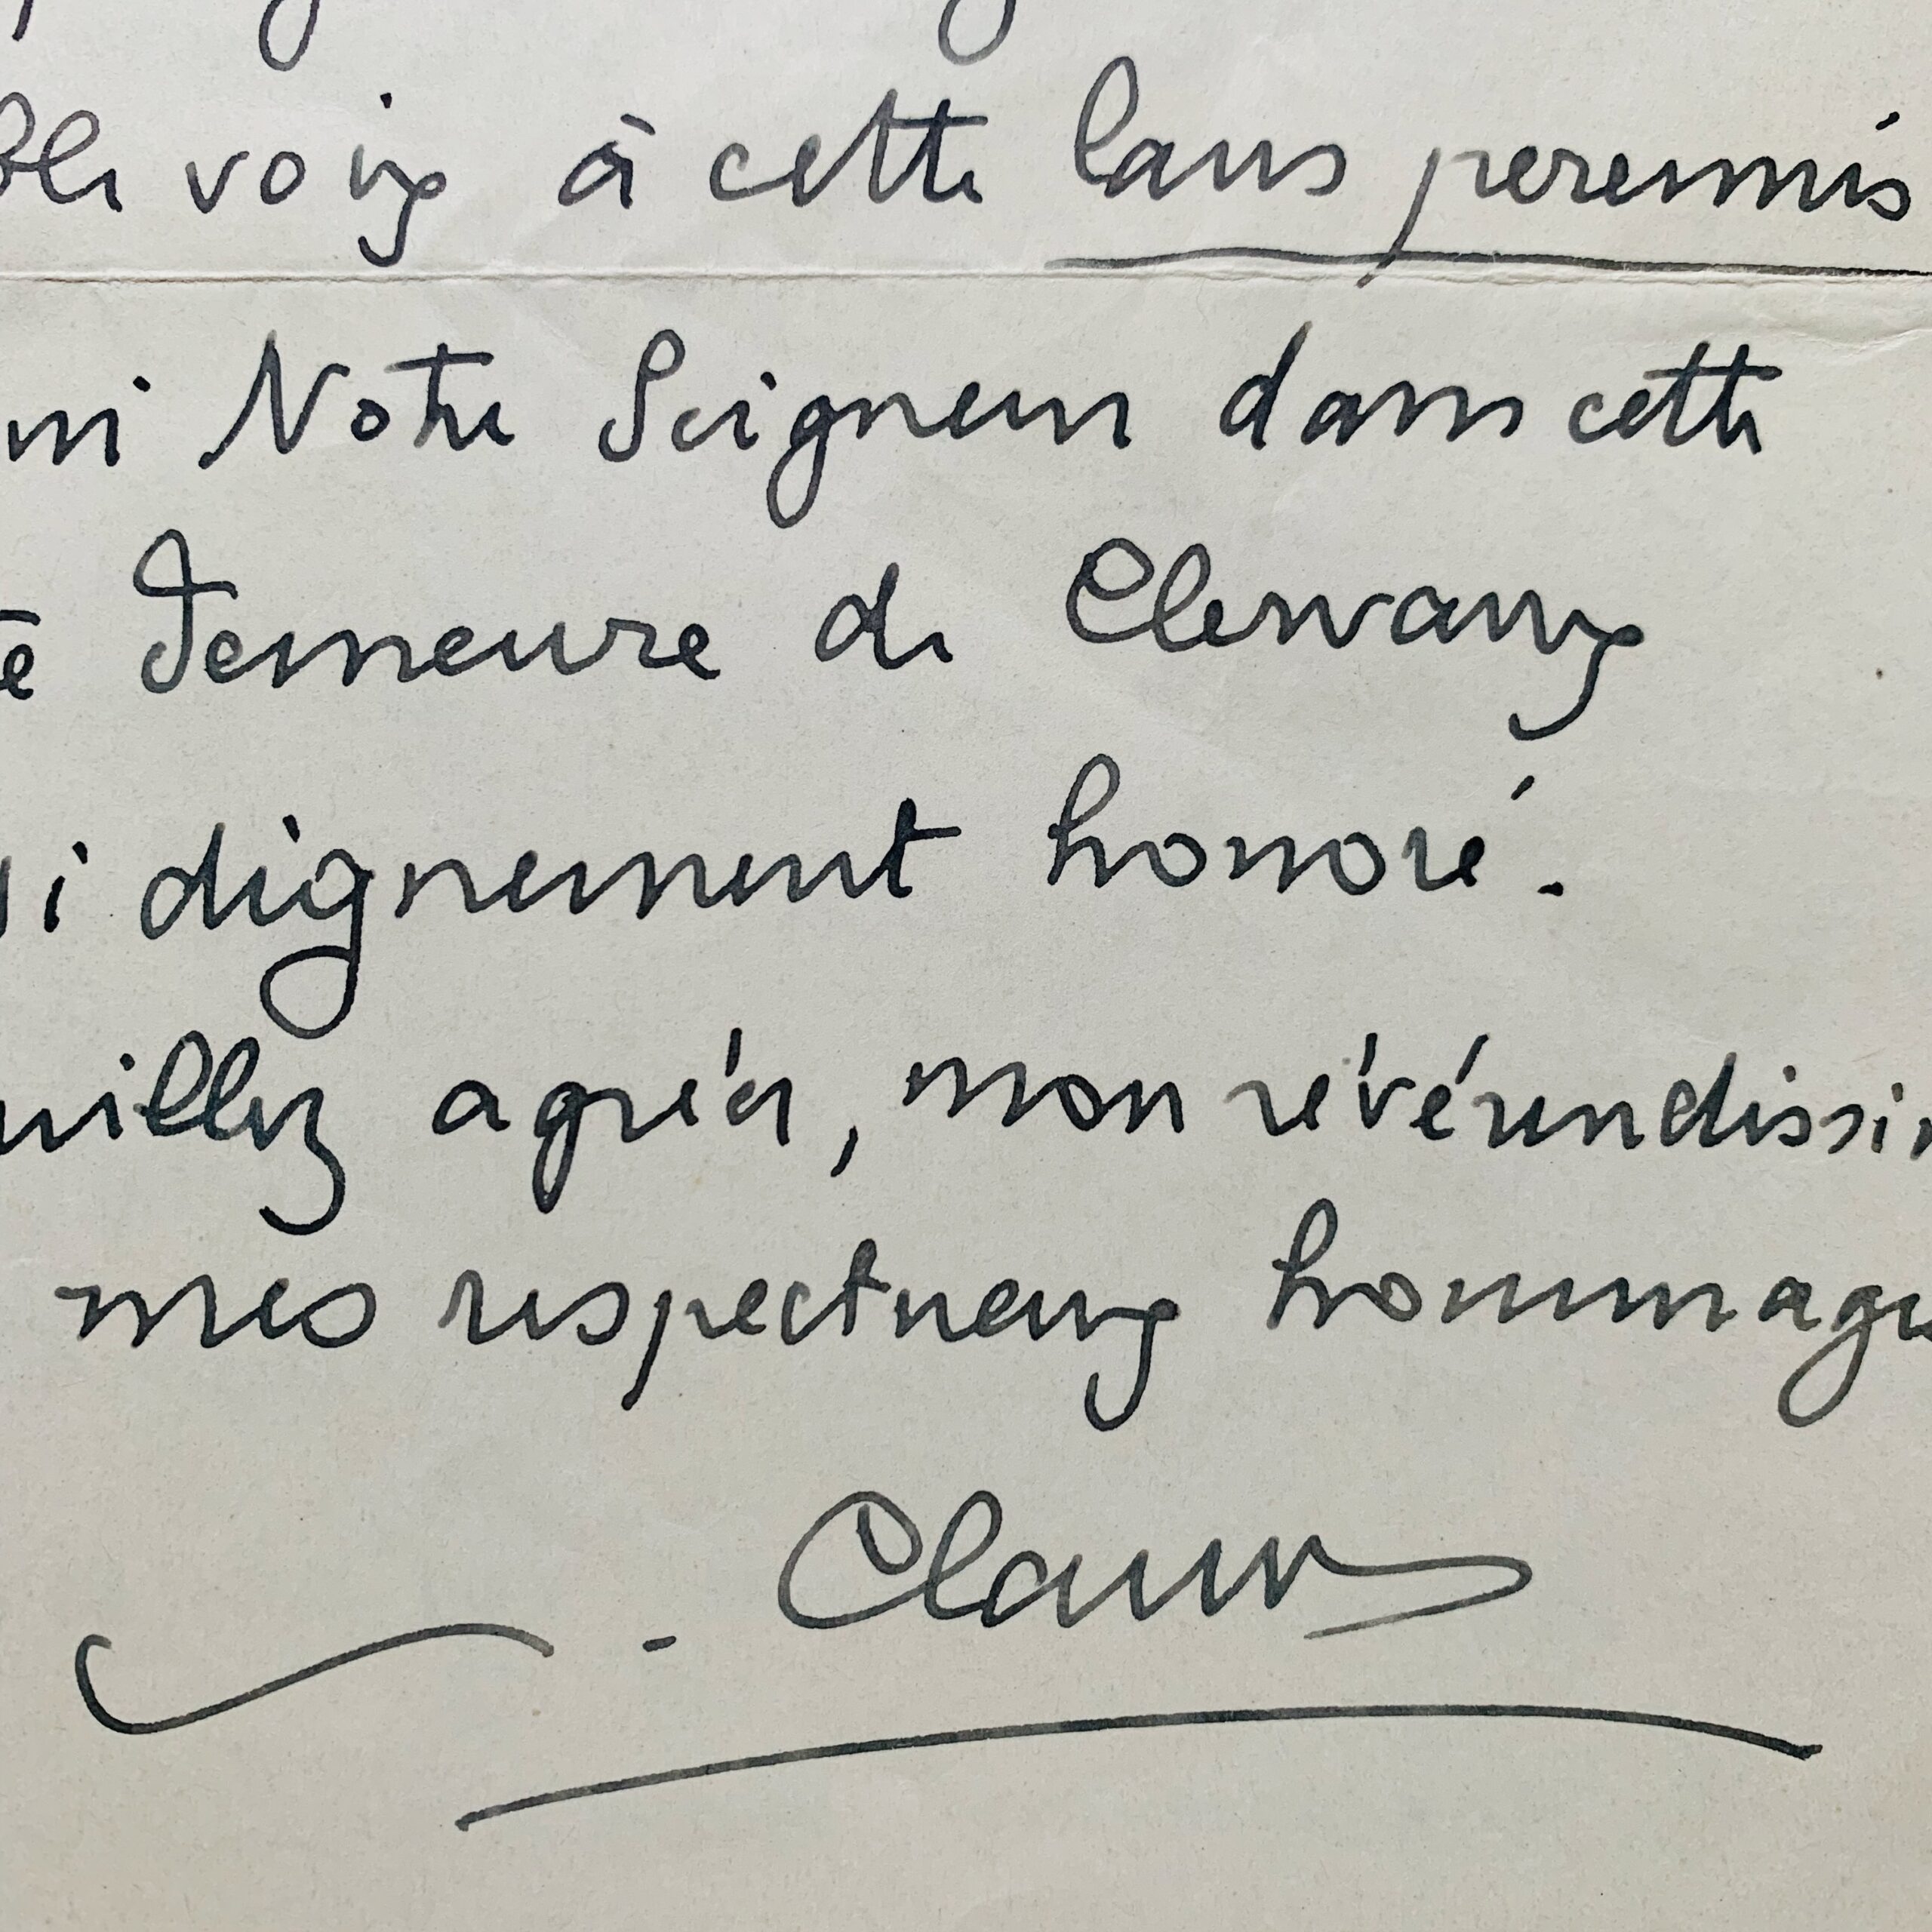 ble voix à cette laus perennis
ui Notre Seigneur dans cette
té Demeure de Clervaux
si dignement honoré.
uillez agréer, mon révérendissi
mes respectueux hommages